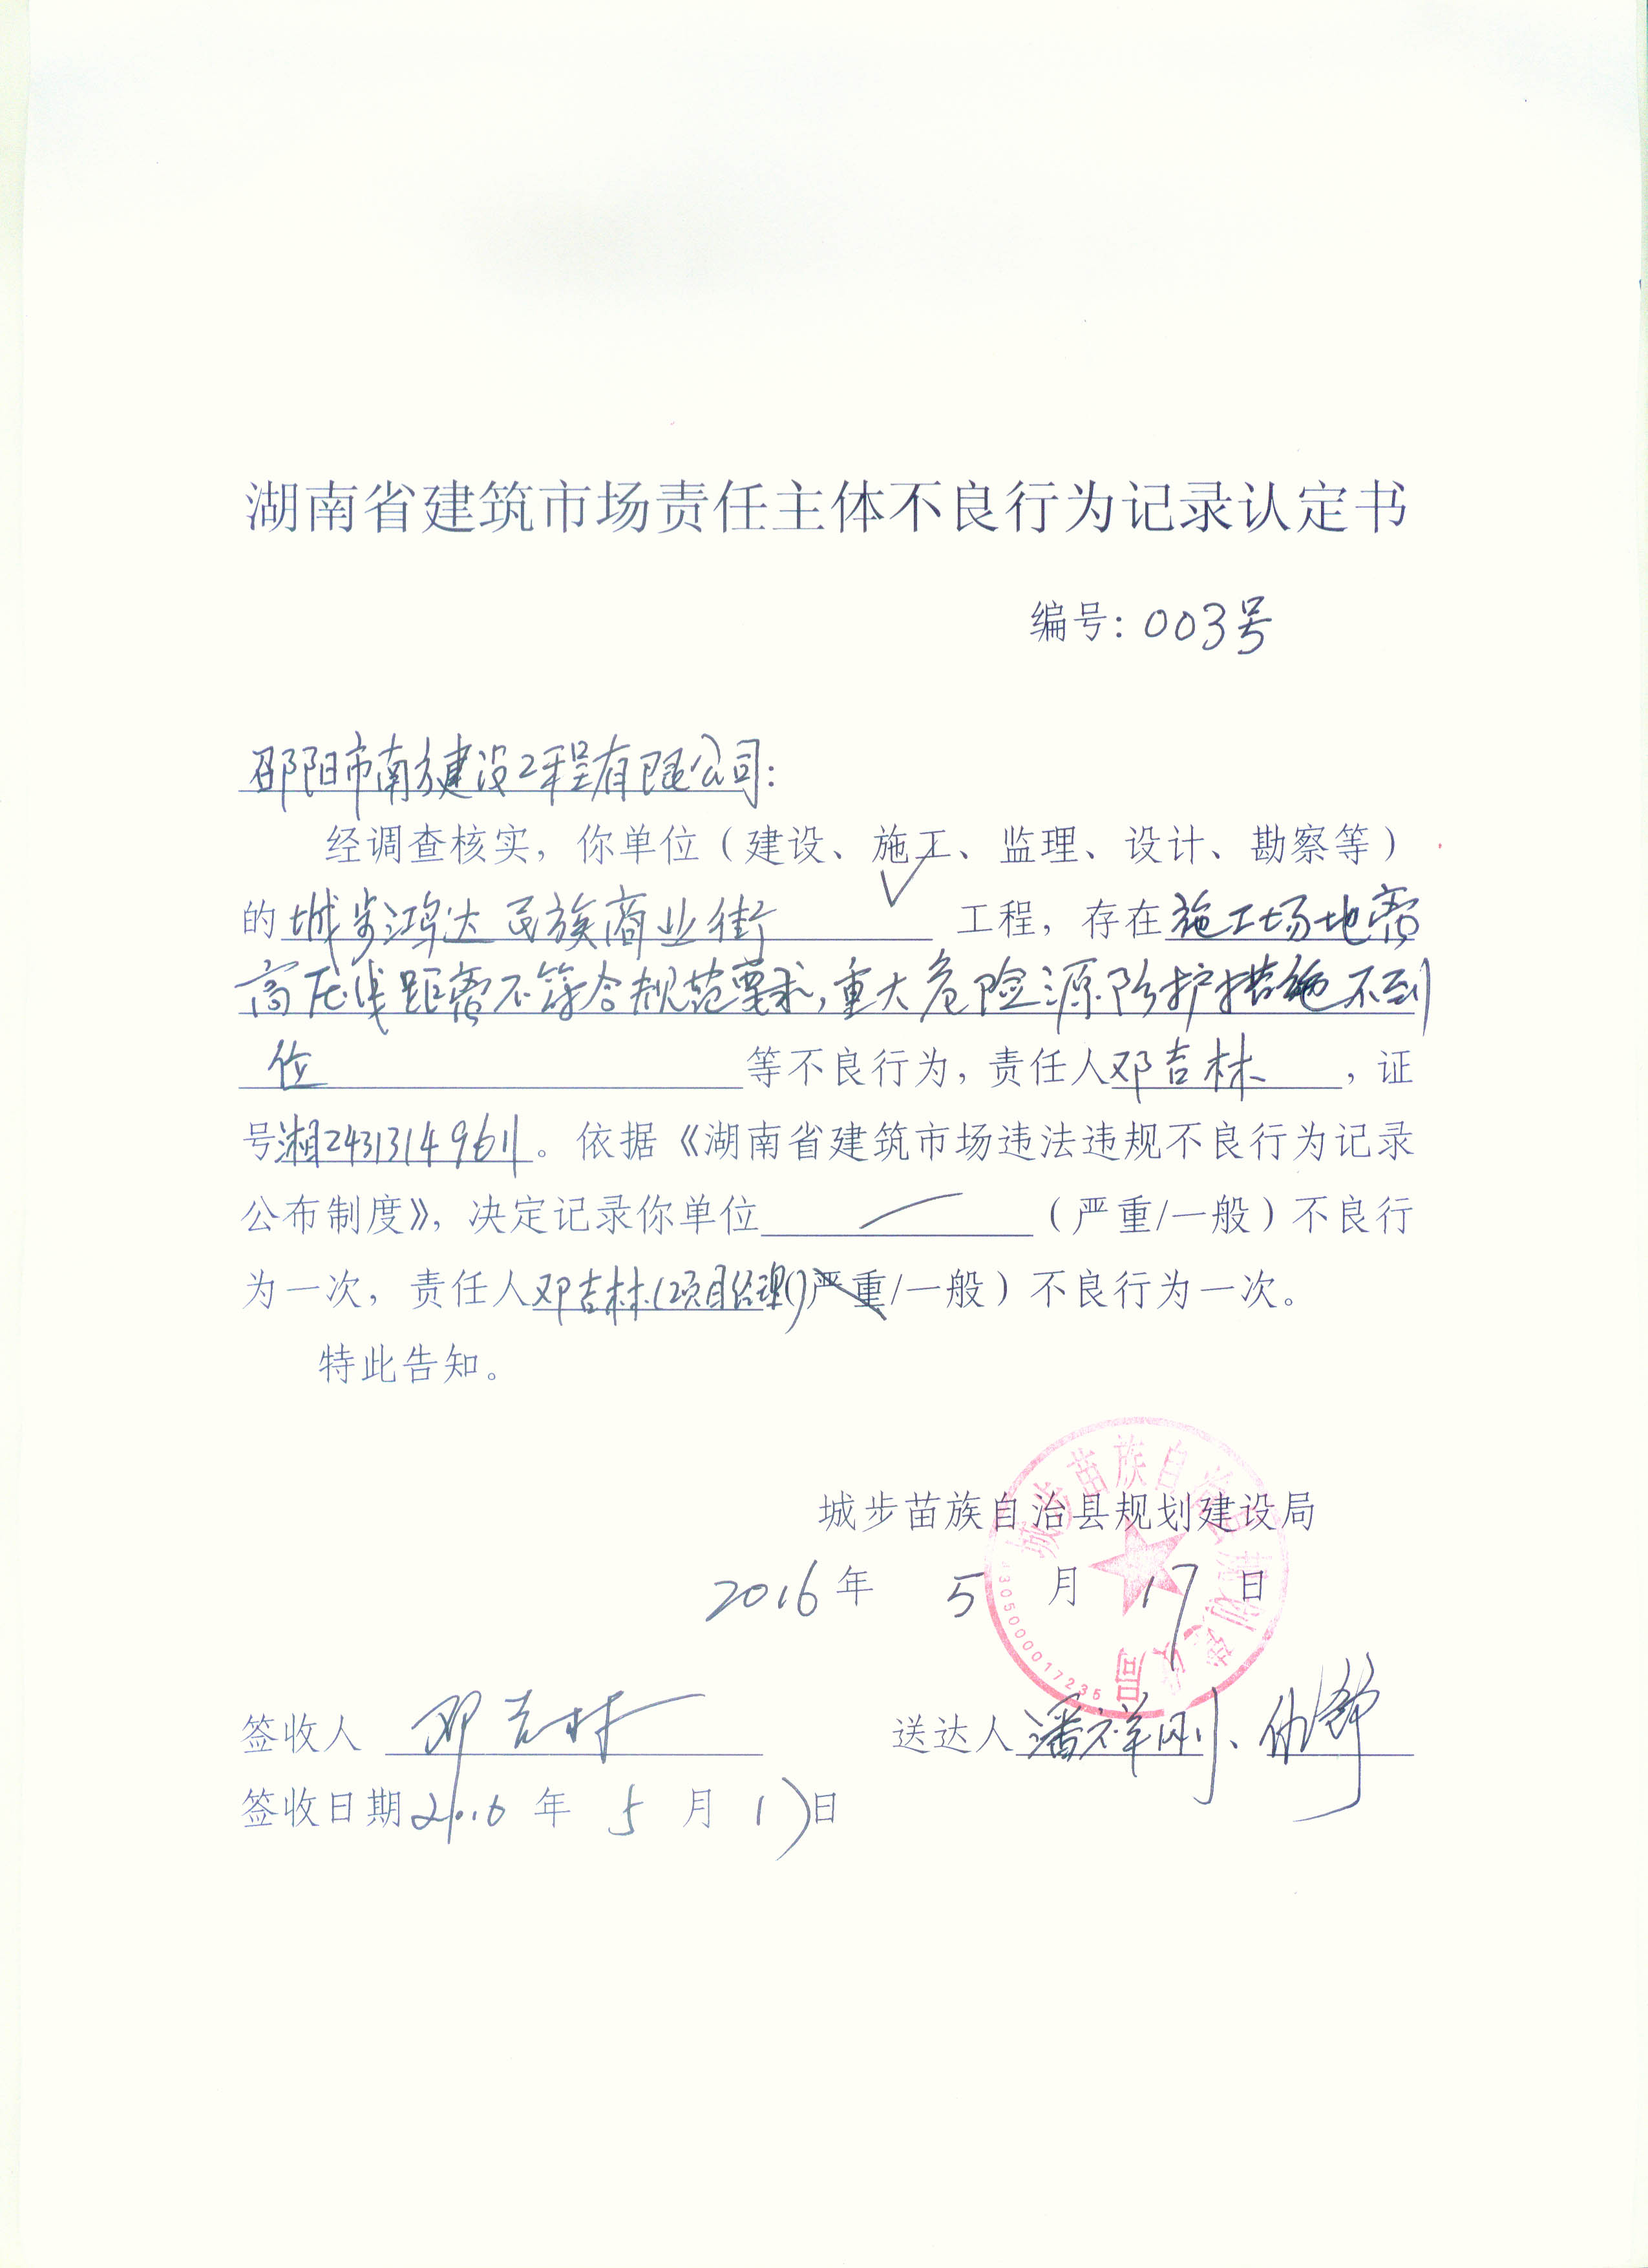 湖南省建筑市场责任主体不良行为记录认定书
编号：003号
邵阳市南方建设工程有限公司：
经调查核实，你单位（建设、施工、监理、设计、勘察等）
√
的城步鸿达民族商业街 工程，存在施工场地离
高压线距离不符合规范要求，重大危险源防护措施不到
位 等不良行为，责任人邓吉林，证
号湘24313149611。依据《湖南省建筑市场违法违规不良行为记录
公布制度》，决定记录你单位 / （严重/一般）不良行
为一次，责任人邓吉林（项目经理）（严重/一般）不良行为一次。
特此告知。
城步苗族自治县规划建设局
2016年 5 月 17 日
城步苗族自治县规划建设局
签收人 邓吉林 送达人 潘祥刚、
签收日期2016年 5 月 17日